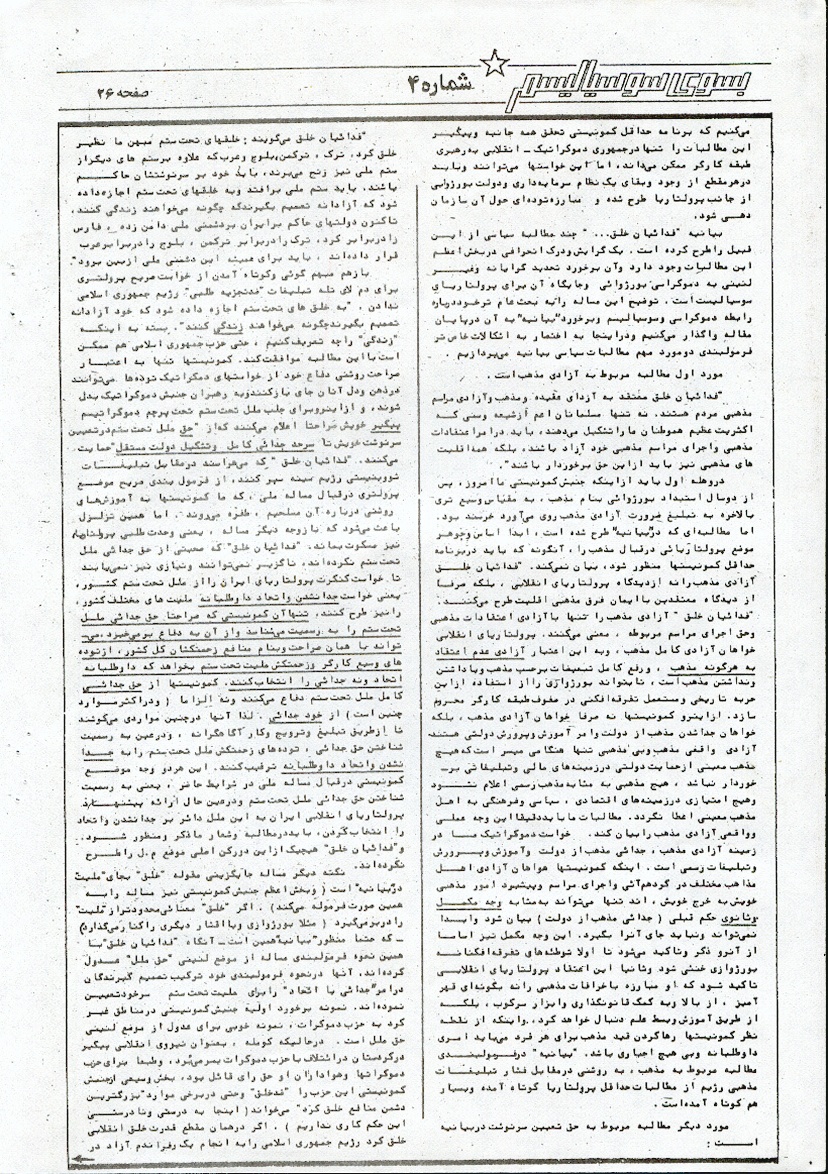 بسوی سوسیالیسم
شماره ۴
صفحه ۲۶
می‌کنیم که برنامه حداقل کمونیستی تحقق همه جانبه و پیگیر
این مطالبات را تنها در جمهوری دموکراتیک - انقلابی به رهبری
طبقه کارگر ممکن می‌داند، اما این خواستها می‌توانند و باید
در هر مقطع از وجود و بقای یک نظام سرمایه‌داری و دولت بورژوایی
از جانب پرولتاریا طرح شده و مبارزه توده‌ای حول آن سازمان
دهی شود.
بیانیه "فدائیان خلق..." چند مطالبه سیاسی از این
قبیل را طرح کرده است. یک گرایش و درک انحرافی در بخش اعظم
این مطالبات وجود دارد و آن برخورد تحدید گرایانه و غیر
لنینی به دموکراسی بورژوائی و جایگاه آن برای پرولتاریای
سوسیالیست است. توضیح این مساله را به بحث عام تر خود درباره
رابطه دموکراسی و سوسیالیسم و برخورد "بیانیه" به آن در پایان
مقاله واگذار می‌کنیم و در اینجا به اختصار به اشکالات خاص تر
فرمولبندی دو مورد مهم مطالبات سیاسی بیانیه می‌پردازیم.
مورد اول مطالبه مربوط به آزادی مذهب است.
"فدائیان خلق معتقد به آزادی عقیده و مذهب و آزادی مراسم
مذهبی مردم هستند. نه تنها مسلمانان اعم از شیعه و سنی که
اکثریت عظیم هموطنان ما را تشکیل می‌دهند، باید در امر اعتقادات
مذهبی و اجرای مراسم مذهبی خود آزاد باشند، بلکه همه اقلیت
های مذهبی نیز باید از این حق برخوردار باشند".
در وهله اول باید از اینکه جنبش کمونیستی ما امروز، پس
از دو سال استبداد بورژوائی بنام مذهب، به مقیاس وسیع تری
بالاخره به تبلیغ ضرورت آزادی مذهب روی می‌آورد خرسند بود.
اما مطالبه‌ای که در "بیانیه" طرح شده است، ابدا اساس و جوهر
موضع پرولتاریائی در قبال مذهب را، آنگونه که باید در برنامه
حداقل کمونیستها منظور شود، بیان نمی‌کند. "فدائیان خلق
آزادی مذهب را نه از دیدگاه پرولتاریای انقلابی، بلکه صرفا
از دیدگاه معتقدین با ایمان فرق مذهبی اقلیت طرح می‌کنند.
"فدائیان خلق" آزادی مذهب را تنها با آزادی اعتقادات مذهبی
و حق اجرای مراسم مربوطه، معنی می‌کنند. پرولتاریای انقلابی
خواهان آزادی کامل مذهب، و به این اعتبار آزادی عدم اعتقاد
به هرگونه مذهب، و رفع کامل تبعیضات بر حسب مذهب و یا داشتن
و نداشتن مذهب است، تا بتواند بورژوازی را از استفاده از این
حربه تاریخی و مستعمل تفرقه‌افکنی در صفوف طبقه کارگر محروم
سازد. از اینرو کمونیستها نه صرفا خواهان آزادی مذهب، بلکه
خواهان جدا شدن مذهب از دولت و امر آموزش و پرورش دولتی هستند
آزادی واقعی مذهب و بی مذهبی تنها هنگامی میسر است که هیچ
مذهب معینی از حمایت دولتی در زمینه‌های مالی و تبلیغاتی بر-
خوردار نباشد، هیچ مذهبی به مثابه مذهب رسمی اعلام نشود
و هیچ امتیازی در زمینه‌های اقتصادی، سیاسی و فرهنگی به اهل
مذهب معینی اعطا نگردد. مطالبات ما باید دقیقا این وجه عملی
و واقعی آزادی مذهب را بیان کند. خواست دموکراتیک ما در
زمینه آزادی مذهب، جدائی مذهب از دولت و آموزش و پرورش
و تبلیغات رسمی است. اینکه کمونیستها خواهان آزادی اهل
مذاهب مختلف در گردهم‌آئی و اجرای مراسم و پیشبرد امور مذهبی
خویش به خرج خویش، اند تنها می‌تواند به مثابه وجه مکمل
و ثانوی حکم قبلی (جدائی مذهب از دولت) بیان شود و ابدا
نمی‌تواند و نباید جای آنرا بگیرد. این وجه مکمل نیز اساسا
از آنرو ذکر و تاکید می‌شود تا اولا توطئه‌های تفرقه‌افکنانه
بورژوازی خنثی شود و ثانیا این اعتقاد پرولتاریای انقلابی
تاکید شود که او مبارزه با خرافات مذهبی را نه بگونه‌ای قهر
آمیز، از بالا و به کمک قانونگذاری و ابزار سرکوب، بلکه
از طریق آموزش و بسط علم دنبال خواهد کرد، و اینکه از نقطه
نظر کمونیستها رها کردن قید مذهب برای هر فرد می‌باید امری
داوطلبانه و بی هیچ اجباری باشد. "بیانیه" در فرمولبندی
مطالبه مربوط به مذهب، به روشنی در مقابل فشار تبلیغات
مذهبی رژیم از مطالبات حداقل پرولتاریا کوتاه آمده و بسیار
هم کوتاه آمده است.
مورد دیگر مطالبه مربوط به حق تعیین سرنوشت در بیانیه
است:
"فدائیان خلق می‌گویند: خلقهای تحت ستم میهن ما نظیر
خلق کرد، ترک، ترکمن، بلوچ و عرب که علاوه بر ستم های دیگر از
ستم ملی نیز رنج می‌برند، باید خود بر سرنوشتشان حاکم
باشند. باید ستم ملی برافتد و به خلقهای تحت ستم اجازه داده
شود که آزادانه تصمیم بگیرند که چگونه می‌خواهند زندگی کنند.
تاکنون دولتهای حاکم بر ایران بر دشمنی ملی دامن زده، فارس
را در برابر کرد، ترک را در برابر ترکمن، بلوچ را در برابر عرب
قرار داده‌اند، باید برای همیشه این دشمنی ملی از بین برود".
باز هم مبهم گوئی و کوتاه آمدن از خواست صریح پرولتری
برای دم لای تله تبلیغات "ضد تجزیه طلبی" رژیم جمهوری اسلامی
ندادن. "به خلق های تحت ستم اجازه داده شود که خود آزادانه
تصمیم بگیرند چگونه می‌خواهند زندگی کنند". بسته به اینکه
"زندگی" را چه تعریف کنیم، حتی حزب جمهوری اسلامی هم ممکن
است با این مطالبه موافقت کند. کمونیستها تنها به اعتبار
صراحت روشنی دفاع خود از خواستهای دمکراتیک توده‌ها می‌توانند
در ذهن و دل آنان جای باز کنند و به رهبران جنبش دموکراتیک بدل
شوند، و از اینرو برای جلب ملل تحت ستم تحت پرچم دموکراتیسم
پیگیر خویش صراحتا اعلام می‌کنند که از "حق ملل تحت ستم در تعیین
سرنوشت خویش تا سرحد جدائی کامل و تشکیل دولت مستقل" حمایت
می‌کنند. "فدائیان خلق" که می‌هراسند در مقابل تبلیغات
شووینیستی رژیم سینه سپر کنند، از فرمول بندی صریح موضع
پرولتری در قبال مساله ملی، که ما کمونیستها به آموزش‌های
روشنی درباره آن مسلحیم، طفره می‌روند. اما همین تزلزل
باعث می‌شود که با وجه دیگر مساله، یعنی وحدت طلبی پرولتاریا،
نیز مسکوت بماند. "فدائیان خلق" که صحبتی از حق جدائی ملل
تحت ستم نکرده‌اند، ناگزیر نمی‌توانند و نیازی نیز نمی‌یابند
تا خواست کنکرت پرولتاریای ایران را از ملل تحت ستم کشور،
یعنی خواست جدا نشدن و اتحاد داوطلبانه ملیت های مختلف کشور،
را نیز طرح کنند. تنها آن کمونیستی که صراحتا حق جدائی ملل
تحت ستم را به رسمیت می‌شناسد و از آن به دفاع برمی‌خیزد، می-
تواند با همان صراحت و بنام منافع زحمتکشان کل کشور، از توده
های وسیع کارگر و زحمتکش ملیت تحت ستم بخواهد که داوطلبانه
اتحاد و نه جدائی را انتخاب کنند. کمونیستها از حق جدائی
کامل ملل تحت ستم دفاع می‌کنند و نه الزاما (و در اکثر موارد
چنین است) از خود جدائی. لذا آنها در چنین مواردی می‌کوشند
تا از طریق تبلیغ و ترویج و کار آگاهگرانه، و در عین به رسمیت
شناختن حق جدائی، توده‌های زحمتکش ملل تحت ستم را به جدا
نشدن و اتحاد داوطلبانه ترغیب کنند. این هر دو وجه موضع
کمونیستی در قبال مساله ملی در شرایط حاضر، یعنی به رسمیت
شناختن حق جدائی ملل تحت ستم و در عین حال ارائه پیشنهاد
پرولتاریای انقلابی ایران به این ملل دائر بر جدا نشدن و اتحاد
را انتخاب کردن، باید در مطالبه و شعار ما ذکر و منظور شود.
و "فدائیان خلق" هیچیک از این دو رکن اصلی موضع م.ل را طرح
نکرده‌اند.
نکته دیگر مساله جایگزینی مقوله "خلق" بجای "ملیت"
در "بیانیه" است (و بخش اعظم جنبش کمونیستی نیز مساله را به
همین صورت فرموله می‌کند). اگر "خلق" معنائی محدودتر از "ملیت"
را در بر می‌گیرد (مثلا بورژوازی و یا اقشار دیگری را کنار می‌گذارد)
- که حتما منظور "بیانیه" همین است - آنگاه "فدائیان خلق" با
همین نحوه فرمولبندی مساله از موضع لنینی "حق ملل" عدول
کرده‌اند. آنها در نحوه فرمولبندی خود ترکیب تصمیم گیرندگان
در امر "جدائی یا اتحاد" را برای ملیت تحت ستم سر خود تعیین
نموده‌اند. نمونه برخورد اولیه جنبش کمونیستی در مناطق غیر
کرد به حزب دموکرات، نمونه خوبی برای عدول از موضع لنینی
حق ملل است. در حالیکه کومله، بعنوان نیروی انقلابی پیگیر
در کردستان در ائتلاف با حزب دموکرات بسر می‌برد، و طبعا برای حزب
دموکراتها و هواداران او حق رای قائل بود، بخش وسیعی از جنبش
کمونیستی این حزب را "ضد خلق" و حتی در برخی موارد "بزرگترین
دشمن منافع خلق کرد" می‌خواند (اینجا به درستی و نادرستی
این حکم کاری نداریم). اگر در همان مقطع قدرت خلق انقلابی
خلق کرد رژیم جمهوری اسلامی را به انجام یک رفراندم آزاد در